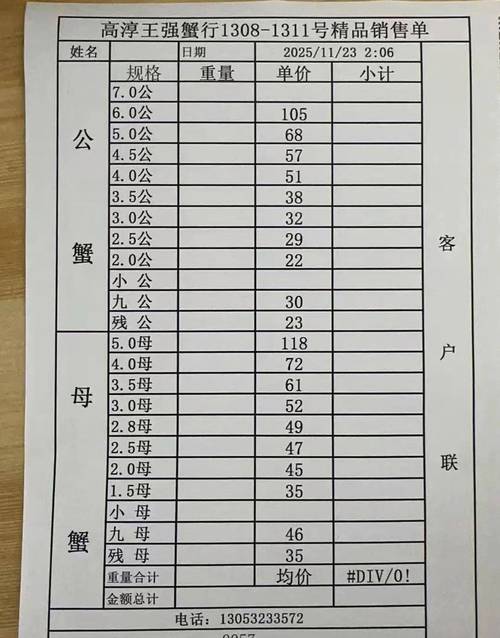 高淳王强蟹行1308-1311号精品销售单
姓名 日期 2025/11/23 2:06
规格 重量 单价 小计
公蟹
7.0公
6.0公 105
5.0公 68
4.5公 57
4.0公 51
3.5公 38
3.0公 32
2.5公 29
2.0公 22
小 公
九 公 30
残 公 23
母蟹
5.0母 118
4.0母 72
3.5母 61
3.0母 52
2.8母 49
2.5母 47
2.0母 45
1.5母 35
小 母
九 母 46
残 母 35
重量合计 均价 #DIV/0!
金额总计
客户联
电话: 13053233572